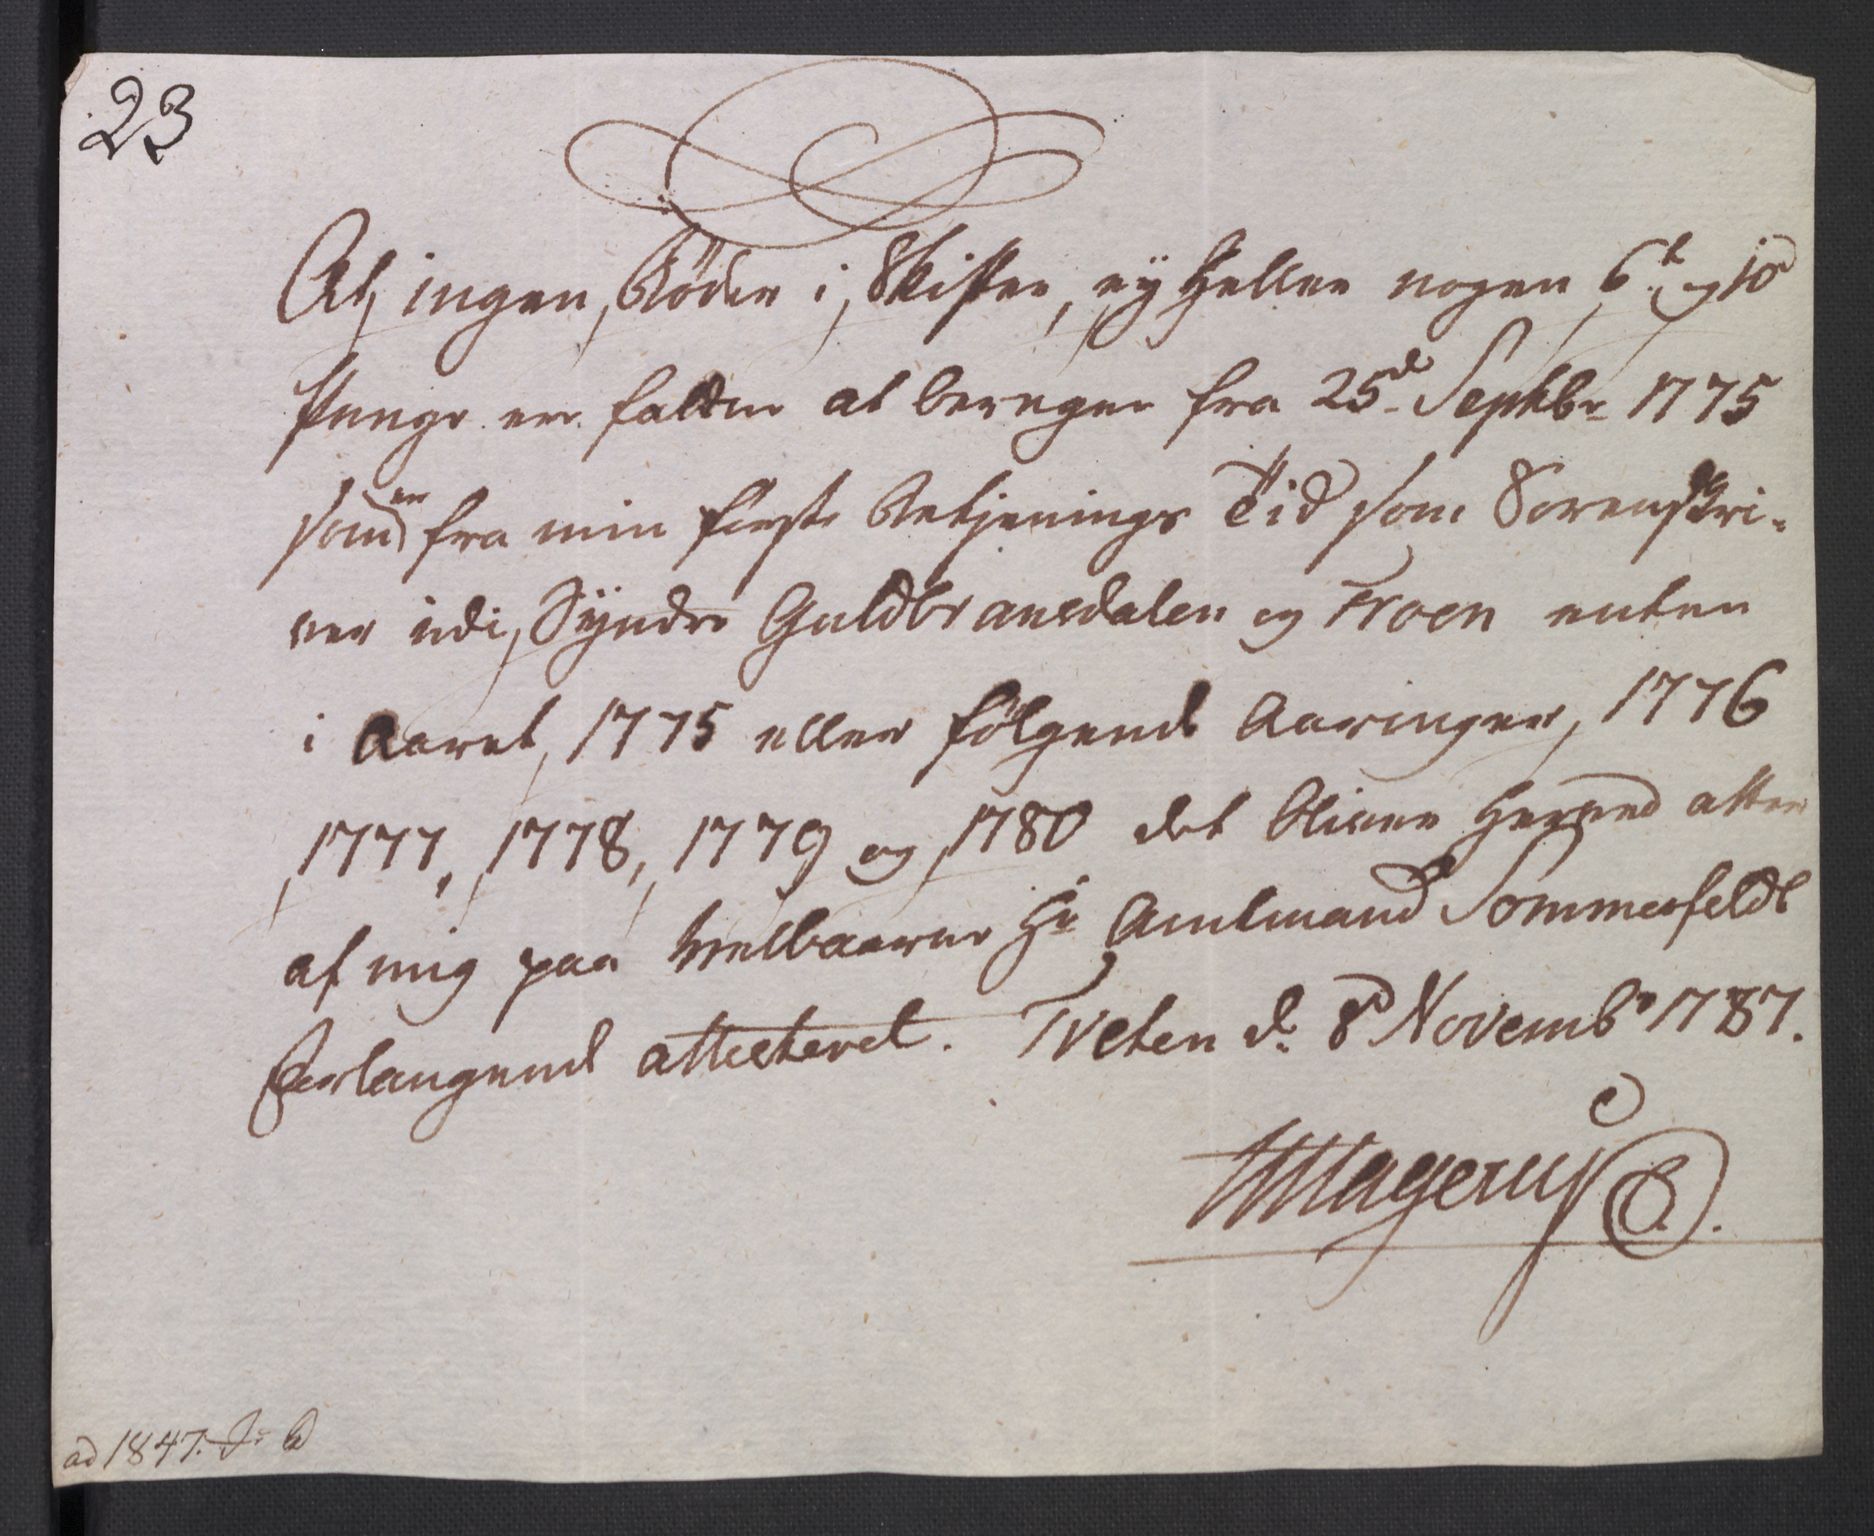 23
At ingen Bøder i Skifter, ey heller nogen 6t og 10d
Penge er falden at beregne fra 25de Septbr 1775
som er fra min første Betjenings Tid som Sorenskri-
ver udi Syndre Guldbransdalen og Froen enten
i Aaret 1775 eller følgende Aaringer, 1776
1777, 1778, 1779 og 1780 det bliver herved efter
af mig paa Velbaarne Hr Amtmand Sommerfeldt
Forlangende attesteret. Tveten d. 8d Novembr 1787.
Magerus
ad 1847.